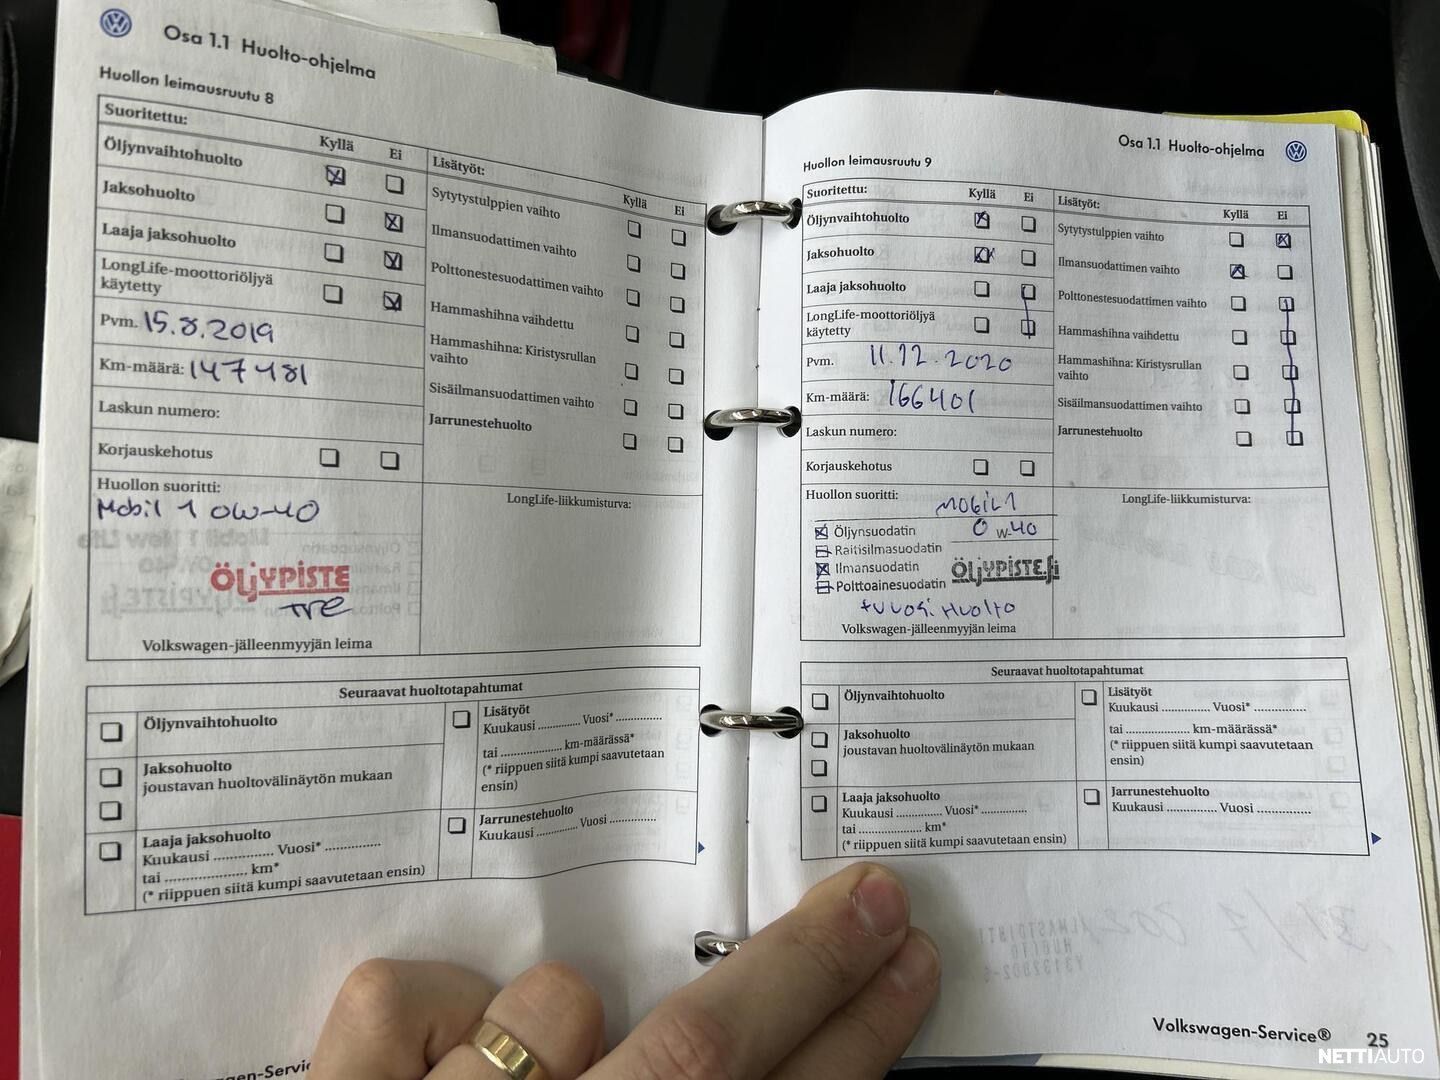 Osa 1.1 Huolto-ohjelma
Huollon leimausruutu 8
Suoritettu:
Kyllä Ei
Öljynvaihtohuolto
Jaksohuolto
Laaja jaksohuolto
LongLife-moottoriöljyä
käytetty
Pvm. 15.8.2019
Km-määrä: 147481
Laskun numero:
Korjauskehotus
Huollon suoritti:
Mobil 1 0W-40
ÖLJYPISTE
TRE
Volkswagen-jälleenmyyjän leima
Lisätyöt:
Kyllä Ei
Sytytystulppien vaihto
Ilmansuodattimen vaihto
Polttonestesuodattimen vaihto
Hammashihna vaihdettu
Hammashihna: Kiristysrullan
vaihto
Sisäilmansuodattimen vaihto
Jarrunestehuolto
LongLife-liikkumisturva:
Seuraavat huoltotapahtumat
Öljynvaihtohuolto
Jaksohuolto
joustavan huoltovälinäytön mukaan
Laaja jaksohuolto
Kuukausi ............... Vuosi* ..............
tai ..................... km*
(* riippuen siitä kumpi saavutetaan ensin)
Lisätyöt
Kuukausi ............ Vuosi* ............
tai .................. km-määrässä*
(* riippuen siitä kumpi saavutetaan
ensin)
Jarrunestehuolto
Kuukausi ............ Vuosi ............
Osa 1.1 Huolto-ohjelma
Huollon leimausruutu 9
Suoritettu:
Kyllä Ei
Öljynvaihtohuolto
Jaksohuolto
Laaja jaksohuolto
LongLife-moottoriöljyä
käytetty
Pvm. 11.12.2020
Km-määrä: 166401
Laskun numero:
Korjauskehotus
Huollon suoritti:
MOBIL 1
Öljynsuodatin 0 W-40
Raitisilmasuodatin
Ilmansuodatin
Polttoainesuodatin
ÖLJYPISTE.fi
Volkswagen-jälleenmyyjän leima
Lisätyöt:
Kyllä Ei
Sytytystulppien vaihto
Ilmansuodattimen vaihto
Polttonestesuodattimen vaihto
Hammashihna vaihdettu
Hammashihna: Kiristysrullan
vaihto
Sisäilmansuodattimen vaihto
Jarrunestehuolto
LongLife-liikkumisturva:
Seuraavat huoltotapahtumat
Öljynvaihtohuolto
Jaksohuolto
joustavan huoltovälinäytön mukaan
Laaja jaksohuolto
Kuukausi ............... Vuosi* ............
tai .................. km*
(* riippuen siitä kumpi saavutetaan ensin)
Lisätyöt
Kuukausi .............. Vuosi* ..............
tai ................... km-määrässä*
(* riippuen siitä kumpi saavutetaan
ensin)
Jarrunestehuolto
Kuukausi .............. Vuosi ..............
Volkswagen-Service® 25
NETTIAUTO